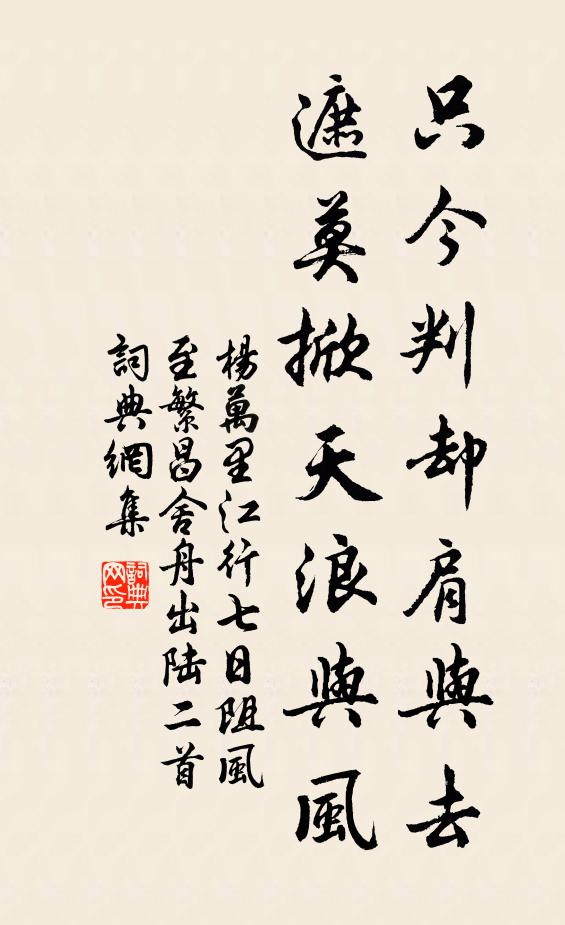 只今判却肩與去
遮莫掀天浪與風
楊萬里江行七日阻風
至繁昌舍舟出陸二首
詞典網集
詞典
网印